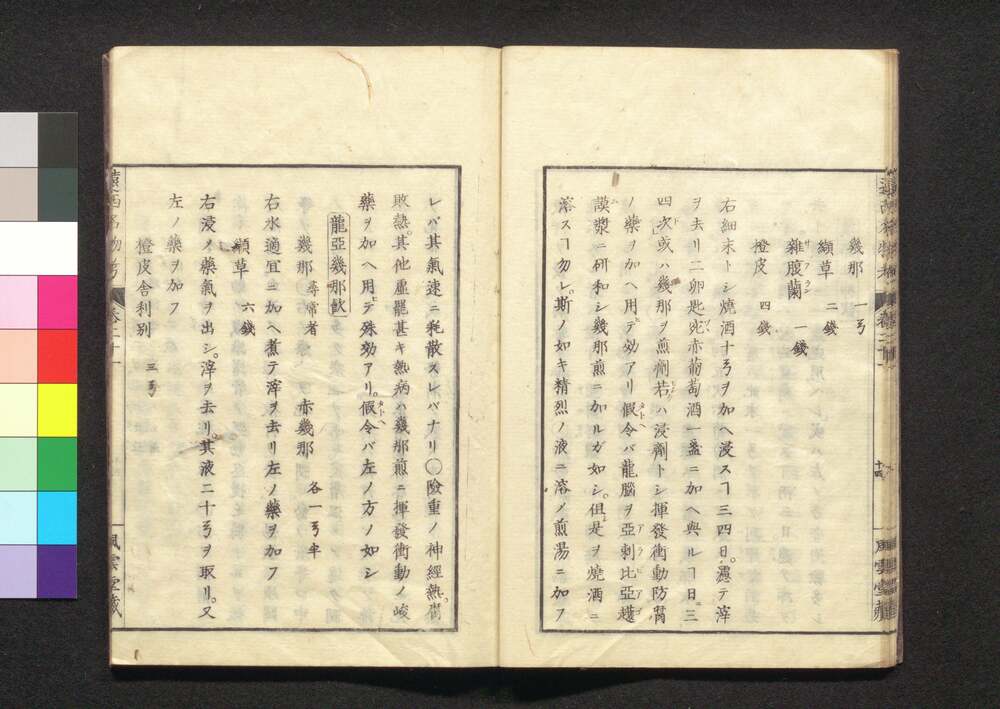 幾那 一弓
纈草 二錢
雜腹蘭 一錢
橙皮 四錢
右細末トシ燒酒十弓ヲ加ヘ浸スヿ三四日。濾テ滓
ヲ去リ二卵匙ヅヽ赤葡萄酒一盞ニ加ヘ與ルヿ日ニ三
四次或ハ幾那ヲ煎劑若ハ浸劑トシ揮發衝動防腐
ノ藥ヲ加ヘ用テ効アリ假令バ龍腦ヲ亞剌比亞護
謨漿ニ研和シ幾那煎ニ加ルガ如シ。但是ヲ燒酒ニ
溶スヿ勿レ。斯ノ如キ精烈ノ液ニ溶ノ煎湯ニ加フ
レバ其氣速ニ耗散スレバナリ〇險重ノ神經熱腐
敗熱。其他虛罷甚キ熱病ハ幾那煎ニ揮發衝動ノ峻
藥ヲ加ヘ用テ殊効アリ。假令バ左ノ方ノ如シ
龍亞幾那飲
幾那 尋常者 赤幾那 各一弓半
右水適宜ニ加ヘ煮テ滓ヲ去リ左ノ藥ヲ加フ
纈草 六錢
右浸メ藥氣ヲ出シ。滓ヲ去リ。其液二十弓ヲ取リ。又
左ノ藥ヲ加フ
橙皮舍利別 三弓
遠西名物考 卷二十
風雲堂藏